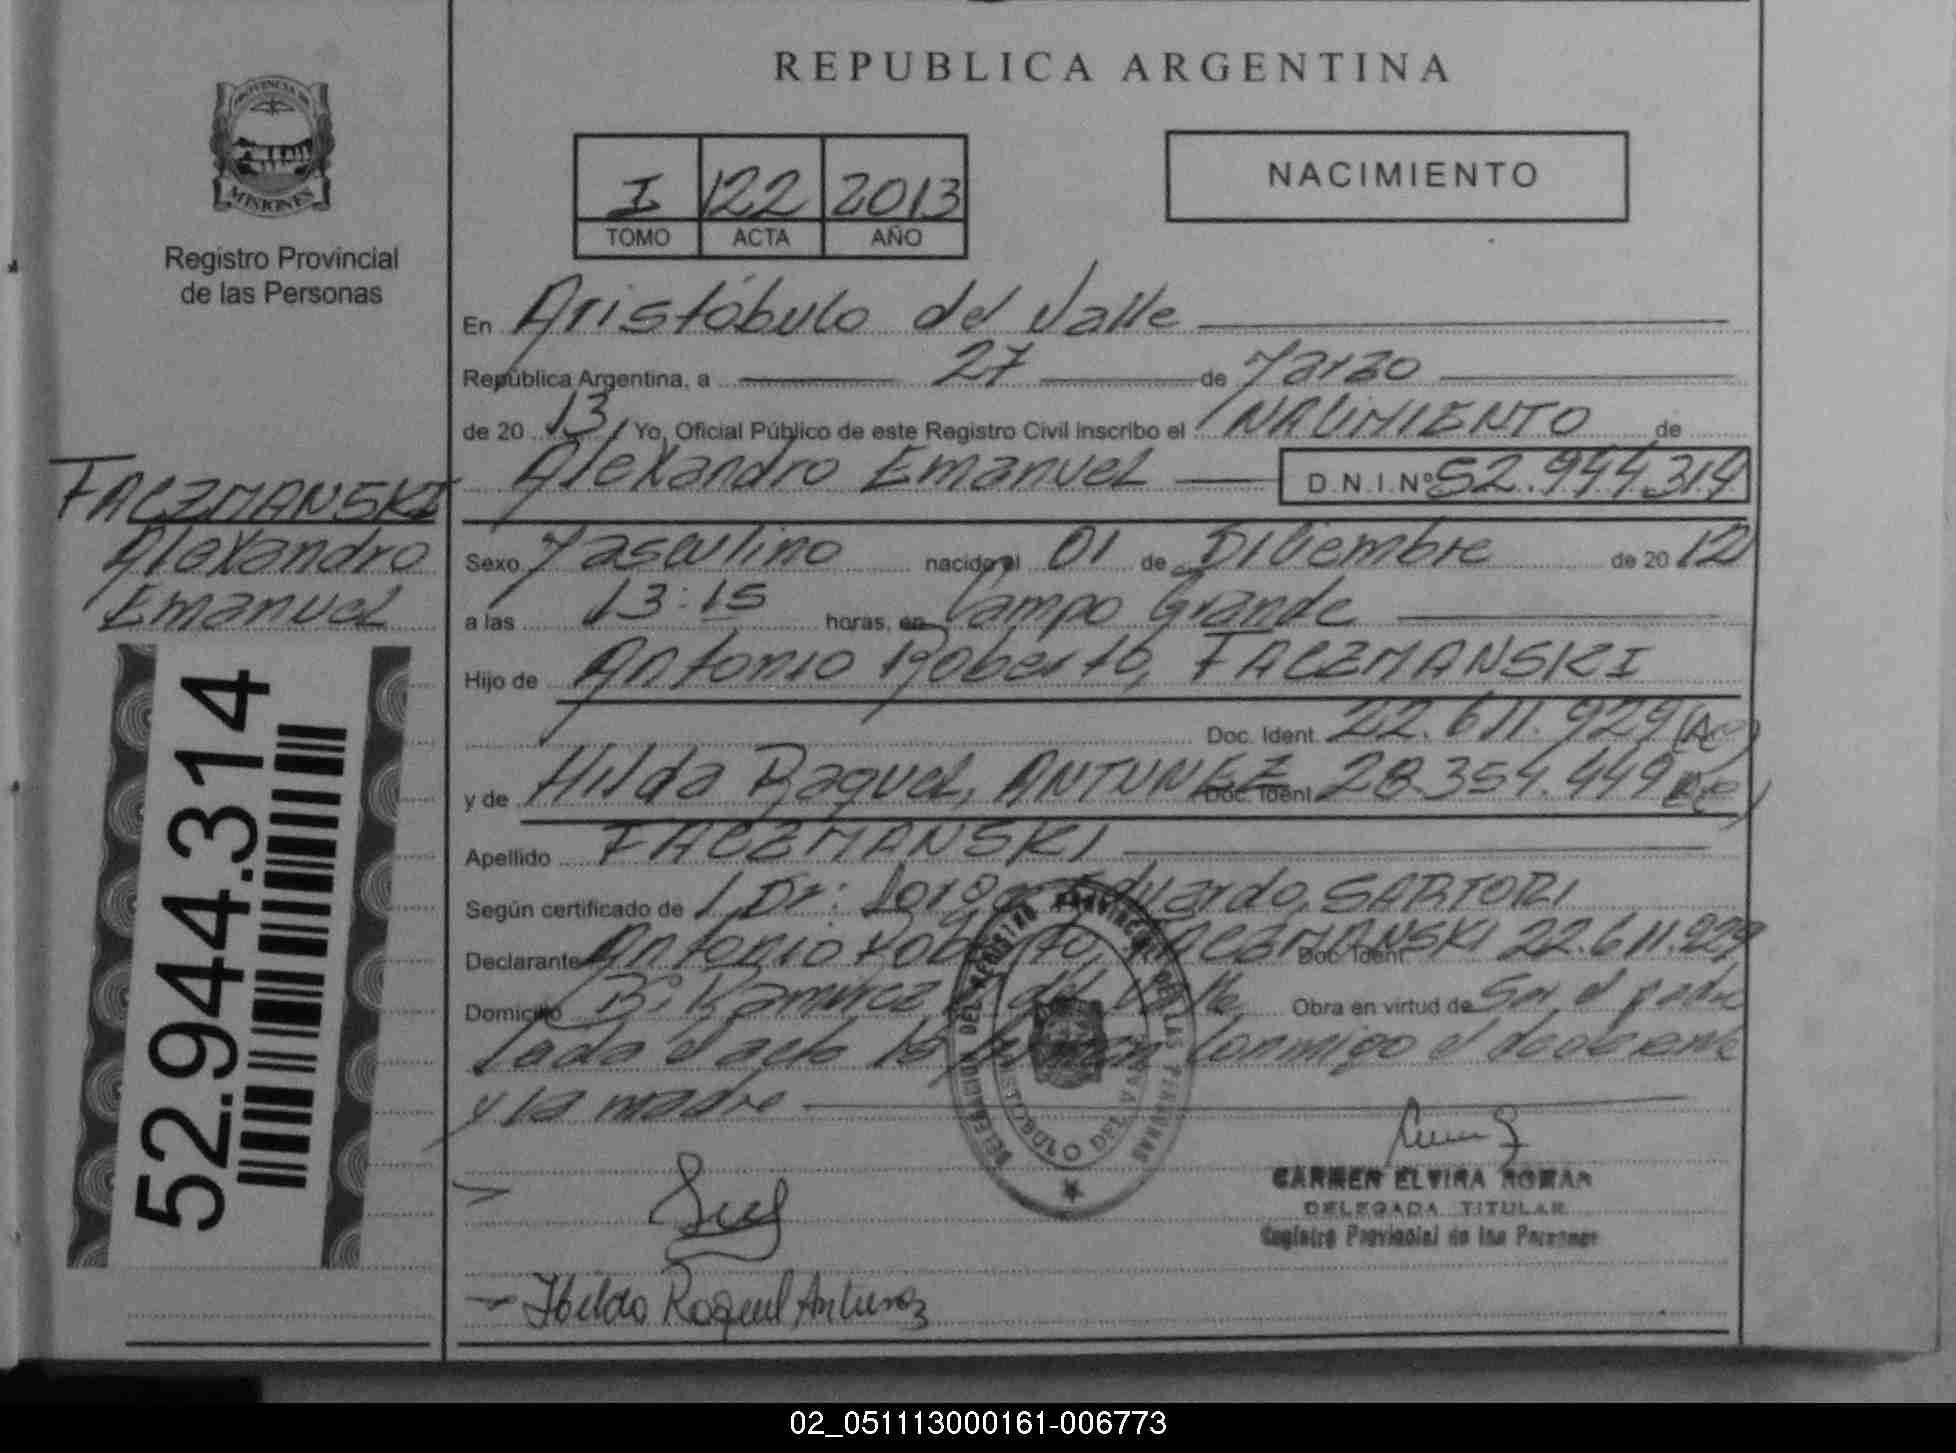 PROVINCIA DE
MISIONES
Registro Provincial
de las Personas
FACZMANSKI
Alexandro
Emanuel
52.944.314
REPUBLICA ARGENTINA
I 122 2013
TOMO ACTA AÑO
NACIMIENTO
En Aristóbulo del Valle
República Argentina, a 27 de Marzo
de 2013, Yo, Oficial Público de este Registro Civil inscribo el NACIMIENTO de
Alexandro Emanuel D.N.I.Nº 52.944.314
Sexo Masculino nacido el 01 de Diciembre de 2012
a las 13:15 horas, en Campo Grande
Hijo de Antonio Roberto, FACZMANSKI
Doc. Ident. 22.611.929
y de Hilda Raquel, ANTUNEZ Doc. Ident. 28.354.449
Apellido FACZMANSKI
Según certificado de Dr: Jorge Eduardo, SARTORI
Declarante Antonio Roberto, FACZMANSKI Doc. Ident. 22.611.929
Domicilio B: Ramirez A. del Valle Obra en virtud de Ser el padre
Leida el acta la firman conmigo el declarante
y la madre
DELEGACION DEL REGISTRO PROVINCIAL DE LAS PERSONAS
ARISTOBULO DEL VALLE
CARMEN ELVIRA ROMAN
DELEGADA TITULAR
Registro Provincial de las Personas
Hilda Raquel Antunez
02_051113000161-006773